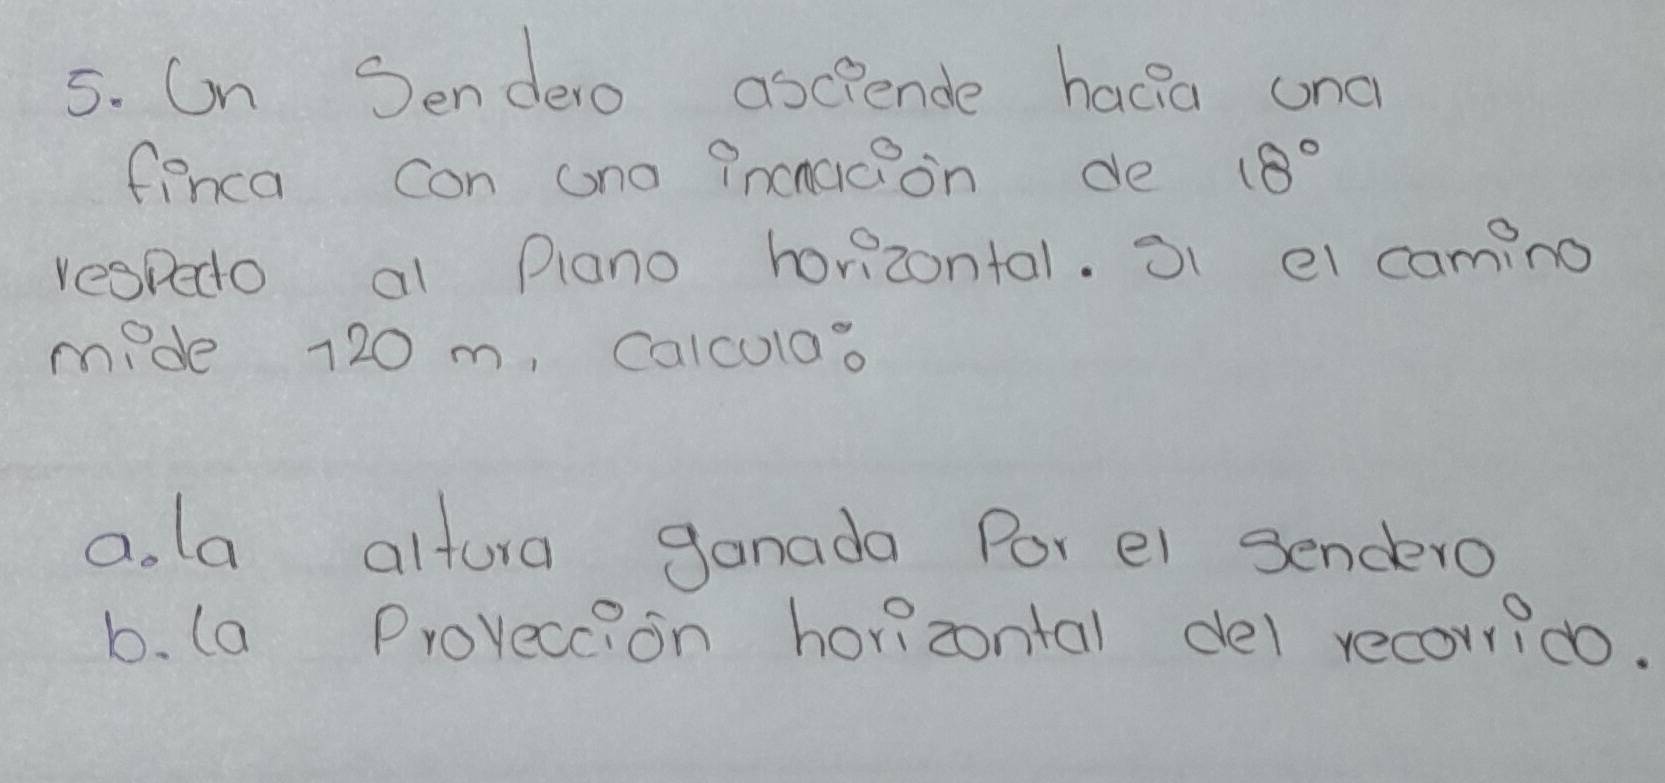 5. Un Sendero asciende hacia una
finca con una incnación de 18°
respecto al Plano horizontal. Si el camino
mide 120 m, calcula:
a. la altura ganada Por el sendero
b. la Proyección horizontal del recorrido.